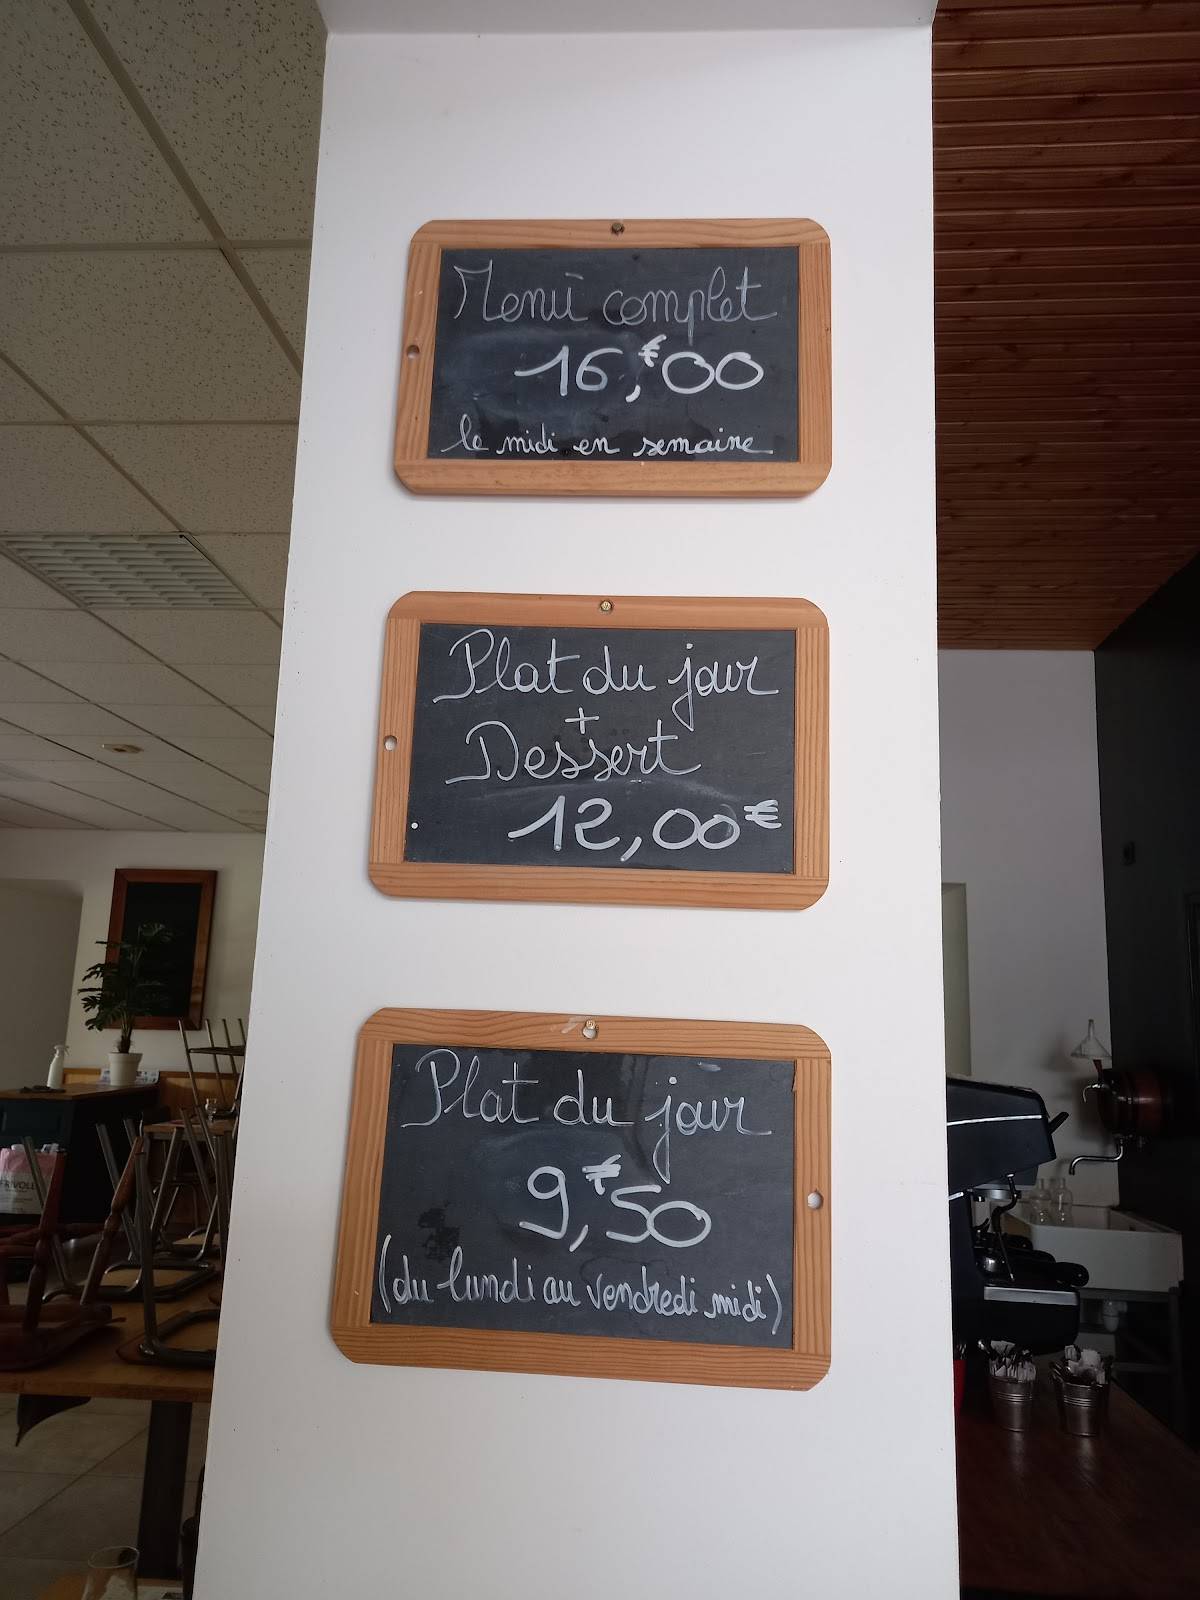 Menu complet
16,€00
le midi en semaine
Plat du jour
+
Dessert
12,00€
Plat du jour
9,€50
(du lundi au vendredi midi)
FRIVOLE